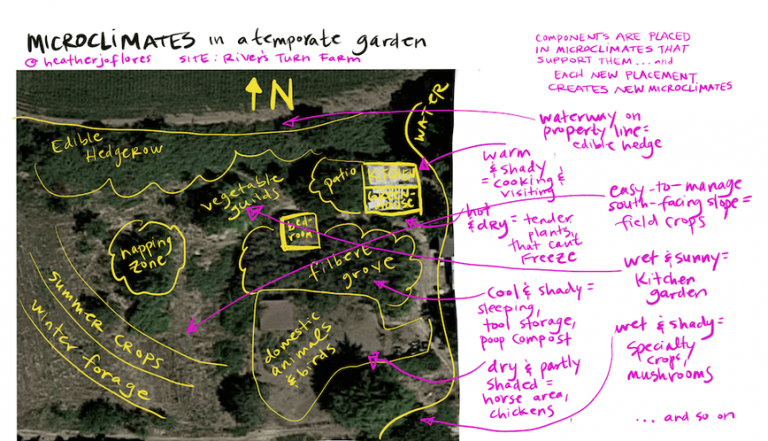 MICROCLIMATES in a temporate garden
@heatherjoflores SITE: River's Turn Farm
COMPONENTS ARE PLACED
IN MICROCLIMATES THAT
SUPPORT THEM...and
EACH NEW PLACEMENT
CREATES NEW MICROCLIMATES
N
WATER
Edible
Hedgerow
vegetable
guilds
patio
KITCHEN
GREEN-
HOUSE
bed-
room
napping
zone
filbert
grove
SUMMER CROPS
winter forage
domestic
animals
& birds
waterway on
property line=
edible hedge
warm
& shady
= cooking &
visiting
easy-to-manage
south-facing slope=
field crops
hot
& dry= tender
plants,
that can't
freeze
wet & sunny=
Kitchen
garden
cool & shady=
sleeping,
tool storage,
poop compost
wet & shady=
specialty
crops,
mushrooms
dry & partly
shaded =
horse area,
chickens
... and so on